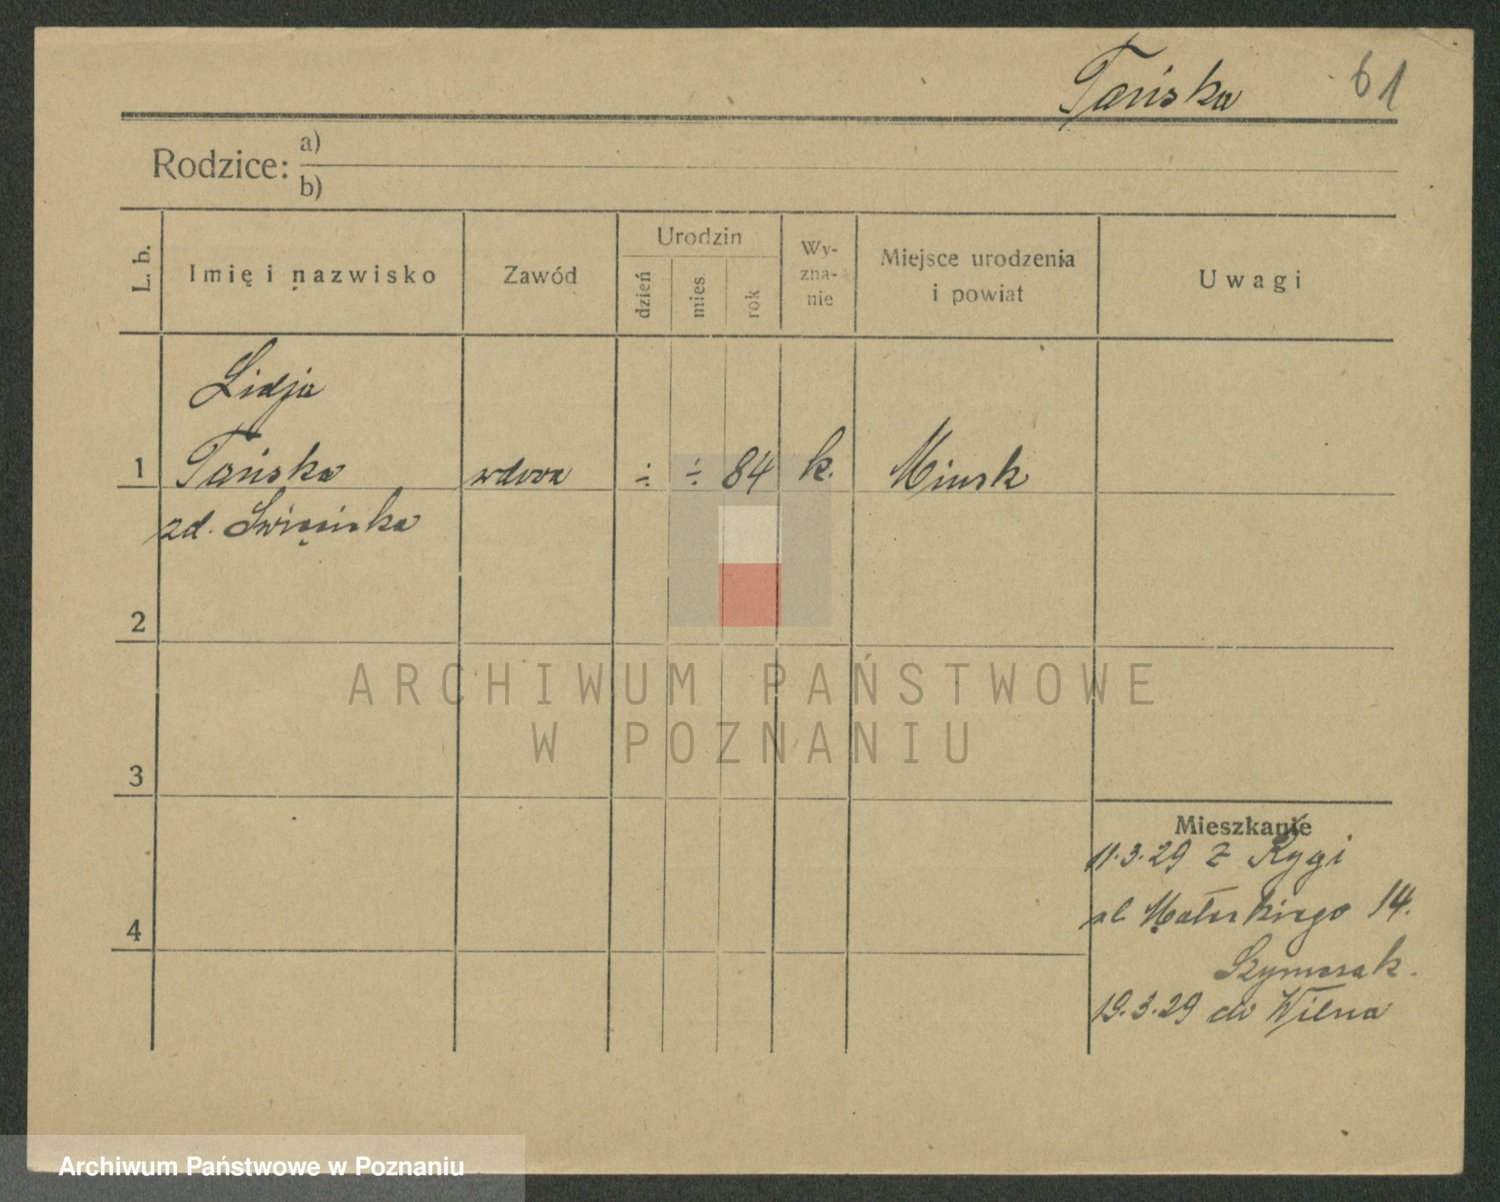 Tańska 61
Rodzice: a)
b)
L. b.
Imię i nazwisko
Zawód
Urodzin
dzień
mies.
rok
Wy-
zna-
nie
Miejsce urodzenia
i powiat
Uwagi
Lidja
1 Tańska wdowa ÷ ÷ 84 k. Minsk
zd.
2
3
4
Mieszkanie
11.3.29 z Rygi
ul. 14.
19.3.29 do Wilna
ARCHIWUM PAŃSTWOWE
W POZNANIU
Archiwum Państwowe w Poznaniu